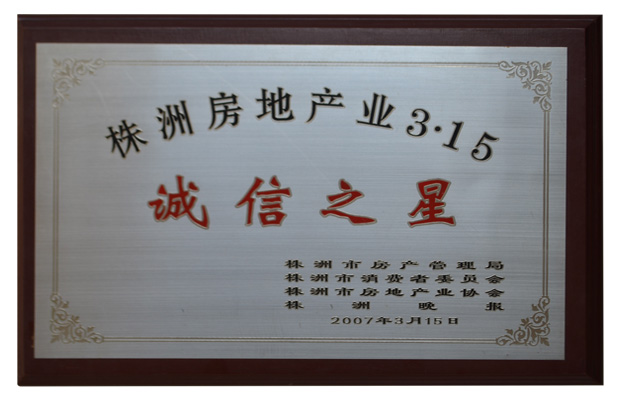 株洲房地产业3·15
诚信之星
株洲市房产管理局
株洲市消费者委员会
株洲市房地产业协会
株洲晚报
2007年3月15日